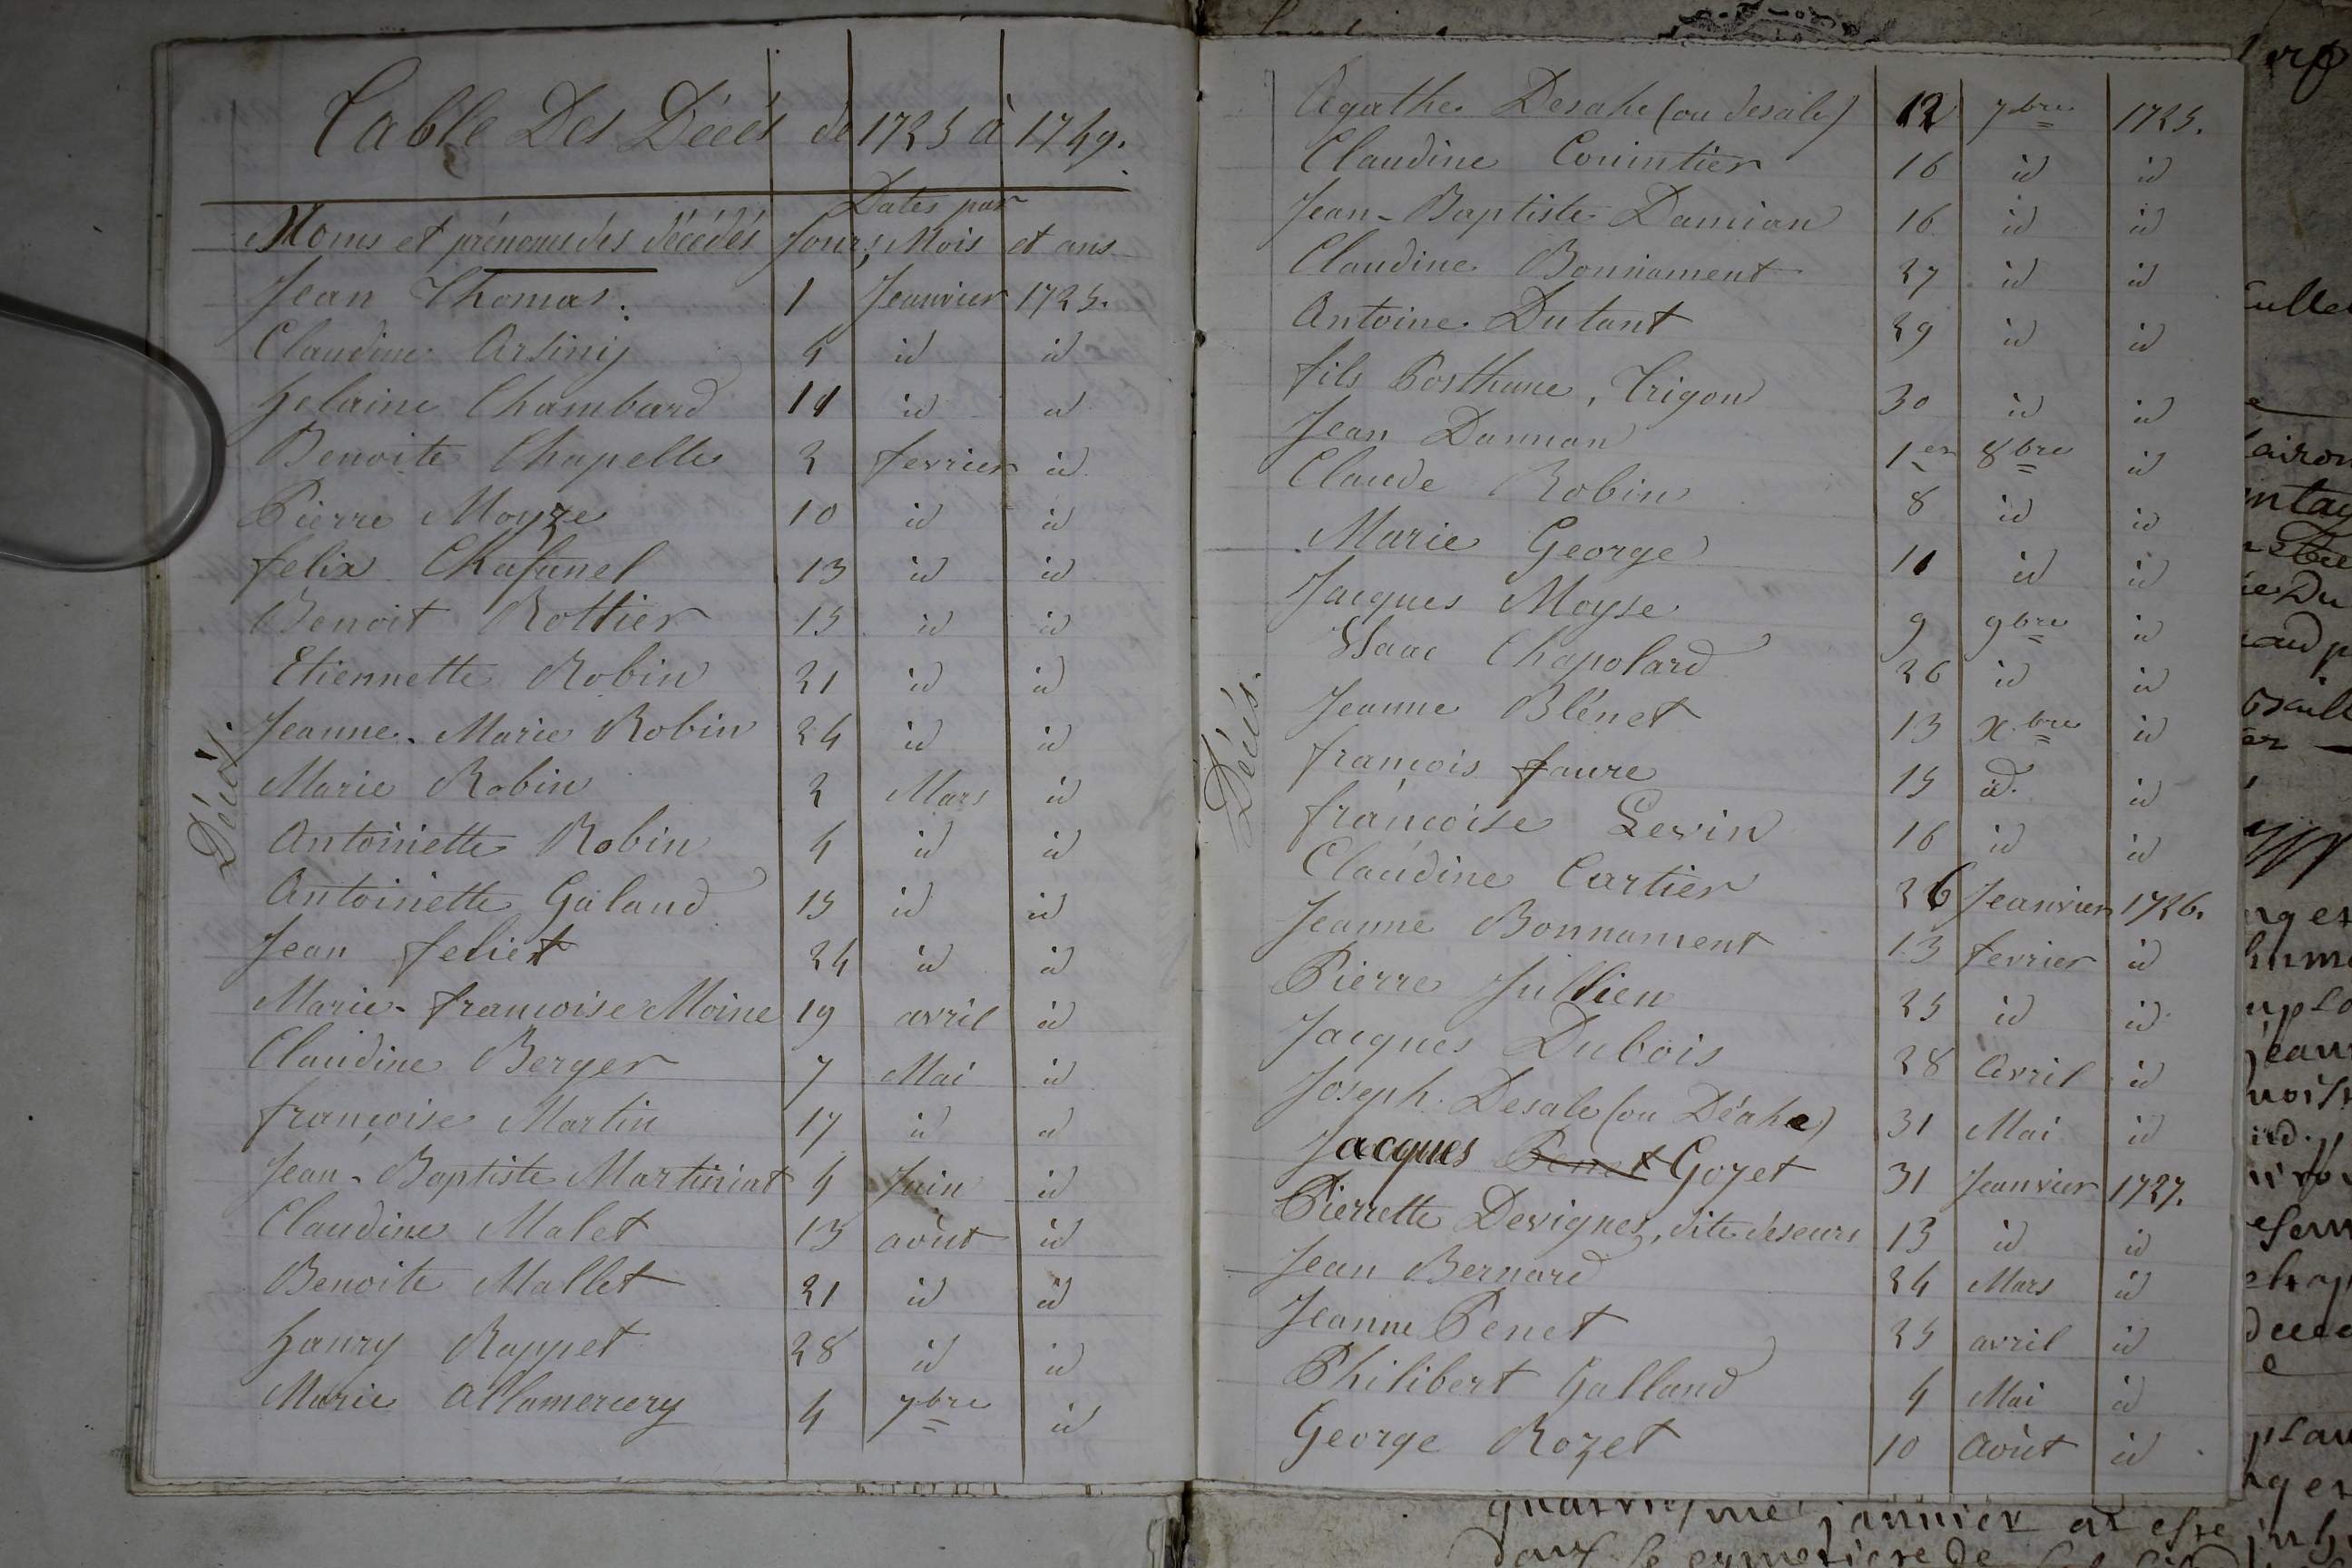 Table Des Décès de 1725 à 1749.
Dates par
Noms et prénoms des décédés Jours, Mois et ans
Jean Thomas. 1 Jeanvier 1725.
Claudine Arsiny 4 id id
Helaine Chambard 11 id id
Benoite Chapelle 2 fevrier id
Pierre Moyze 10 id id
felix Chafanel 13 id id
Benoit Rottier 15 id id
Etiennette Robin 21 id id
Jeanne-Marie Robin 24 id id
Marie Robin 2 Mars id
Antoinette Robin 4 id id
Antoinette Galand 15 id id
Jean feliet 24 id id
Marie-francoise Moine 19 avril id
Claudine Berger 7 Mai id
françoise Martin 17 id id
Jean-Baptiste Martinint 4 Juin id
Claudine Malet 13 août id
Benoite Mallet 21 id id
Hanry Rappet 28 id id
Marie Allamercery 4 7bre id
Décès.
Agathe Desahe (ou desale) 12 7bre 1725.
Claudine Conintier 16 id id
Jean-Baptiste Damian 16 id id
Claudine Bonnament 27 id id
Antoine Dutant 29 id id
fils Posthume, Trigon 30 id id
Jean Dannan 1er 8bre id
Claude Robin 8 id id
Marie George 11 id id
Jacques Moyse 9 9bre id
Isaac Chapolard 26 id id
Jeanne Blénet 13 xbre id
françois faure 15 id. id
françoise Levin 16 id id
Claudine Cartier 26 Jeanvier 1726.
Jeanne Bonnament 13 fevrier id
Pierre Jullien 25 id id
Jacques Dubois 28 Avril id
Joseph Desale (ou Déahe) 31 Mai id
Jacques Penet Goyet 31 Jeanvier 1727.
Pierrette Devignes, dite deseurs 13 id id
Jean Bernard 24 Mars id
Jeanne Penet 25 avril id
Philibert Galland 4 Mai id
George Rozet 10 Août id
Décès.